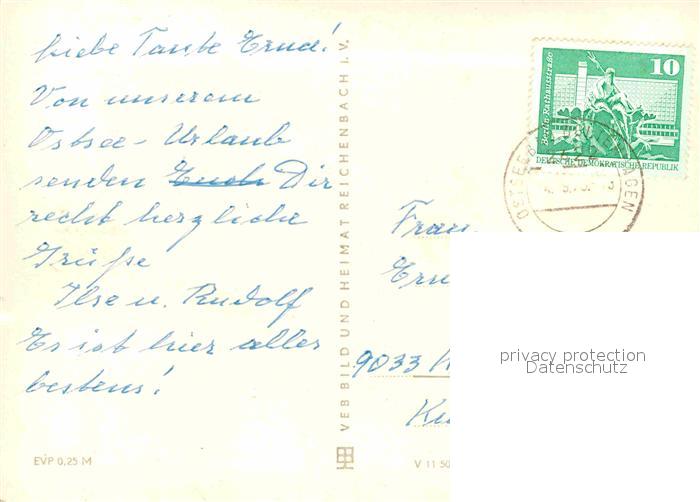 Liebe Tante Erna!
Von unserem
Ostsee-Urlaub
senden Euch Dir
recht herzliche
Grüße
Ilse u. Rudolf
Es ist hier alles
bestens!
EVP 0,25 M
VEB BILD UND HEIMAT REICHENBACH I. V.
10
Berlin Rathausstraße
DEUTSCHE DEMOKRATISCHE REPUBLIK
OSTSEEB
AGEN
Frau
9033
V 11 50
privacy protection
Datenschutz